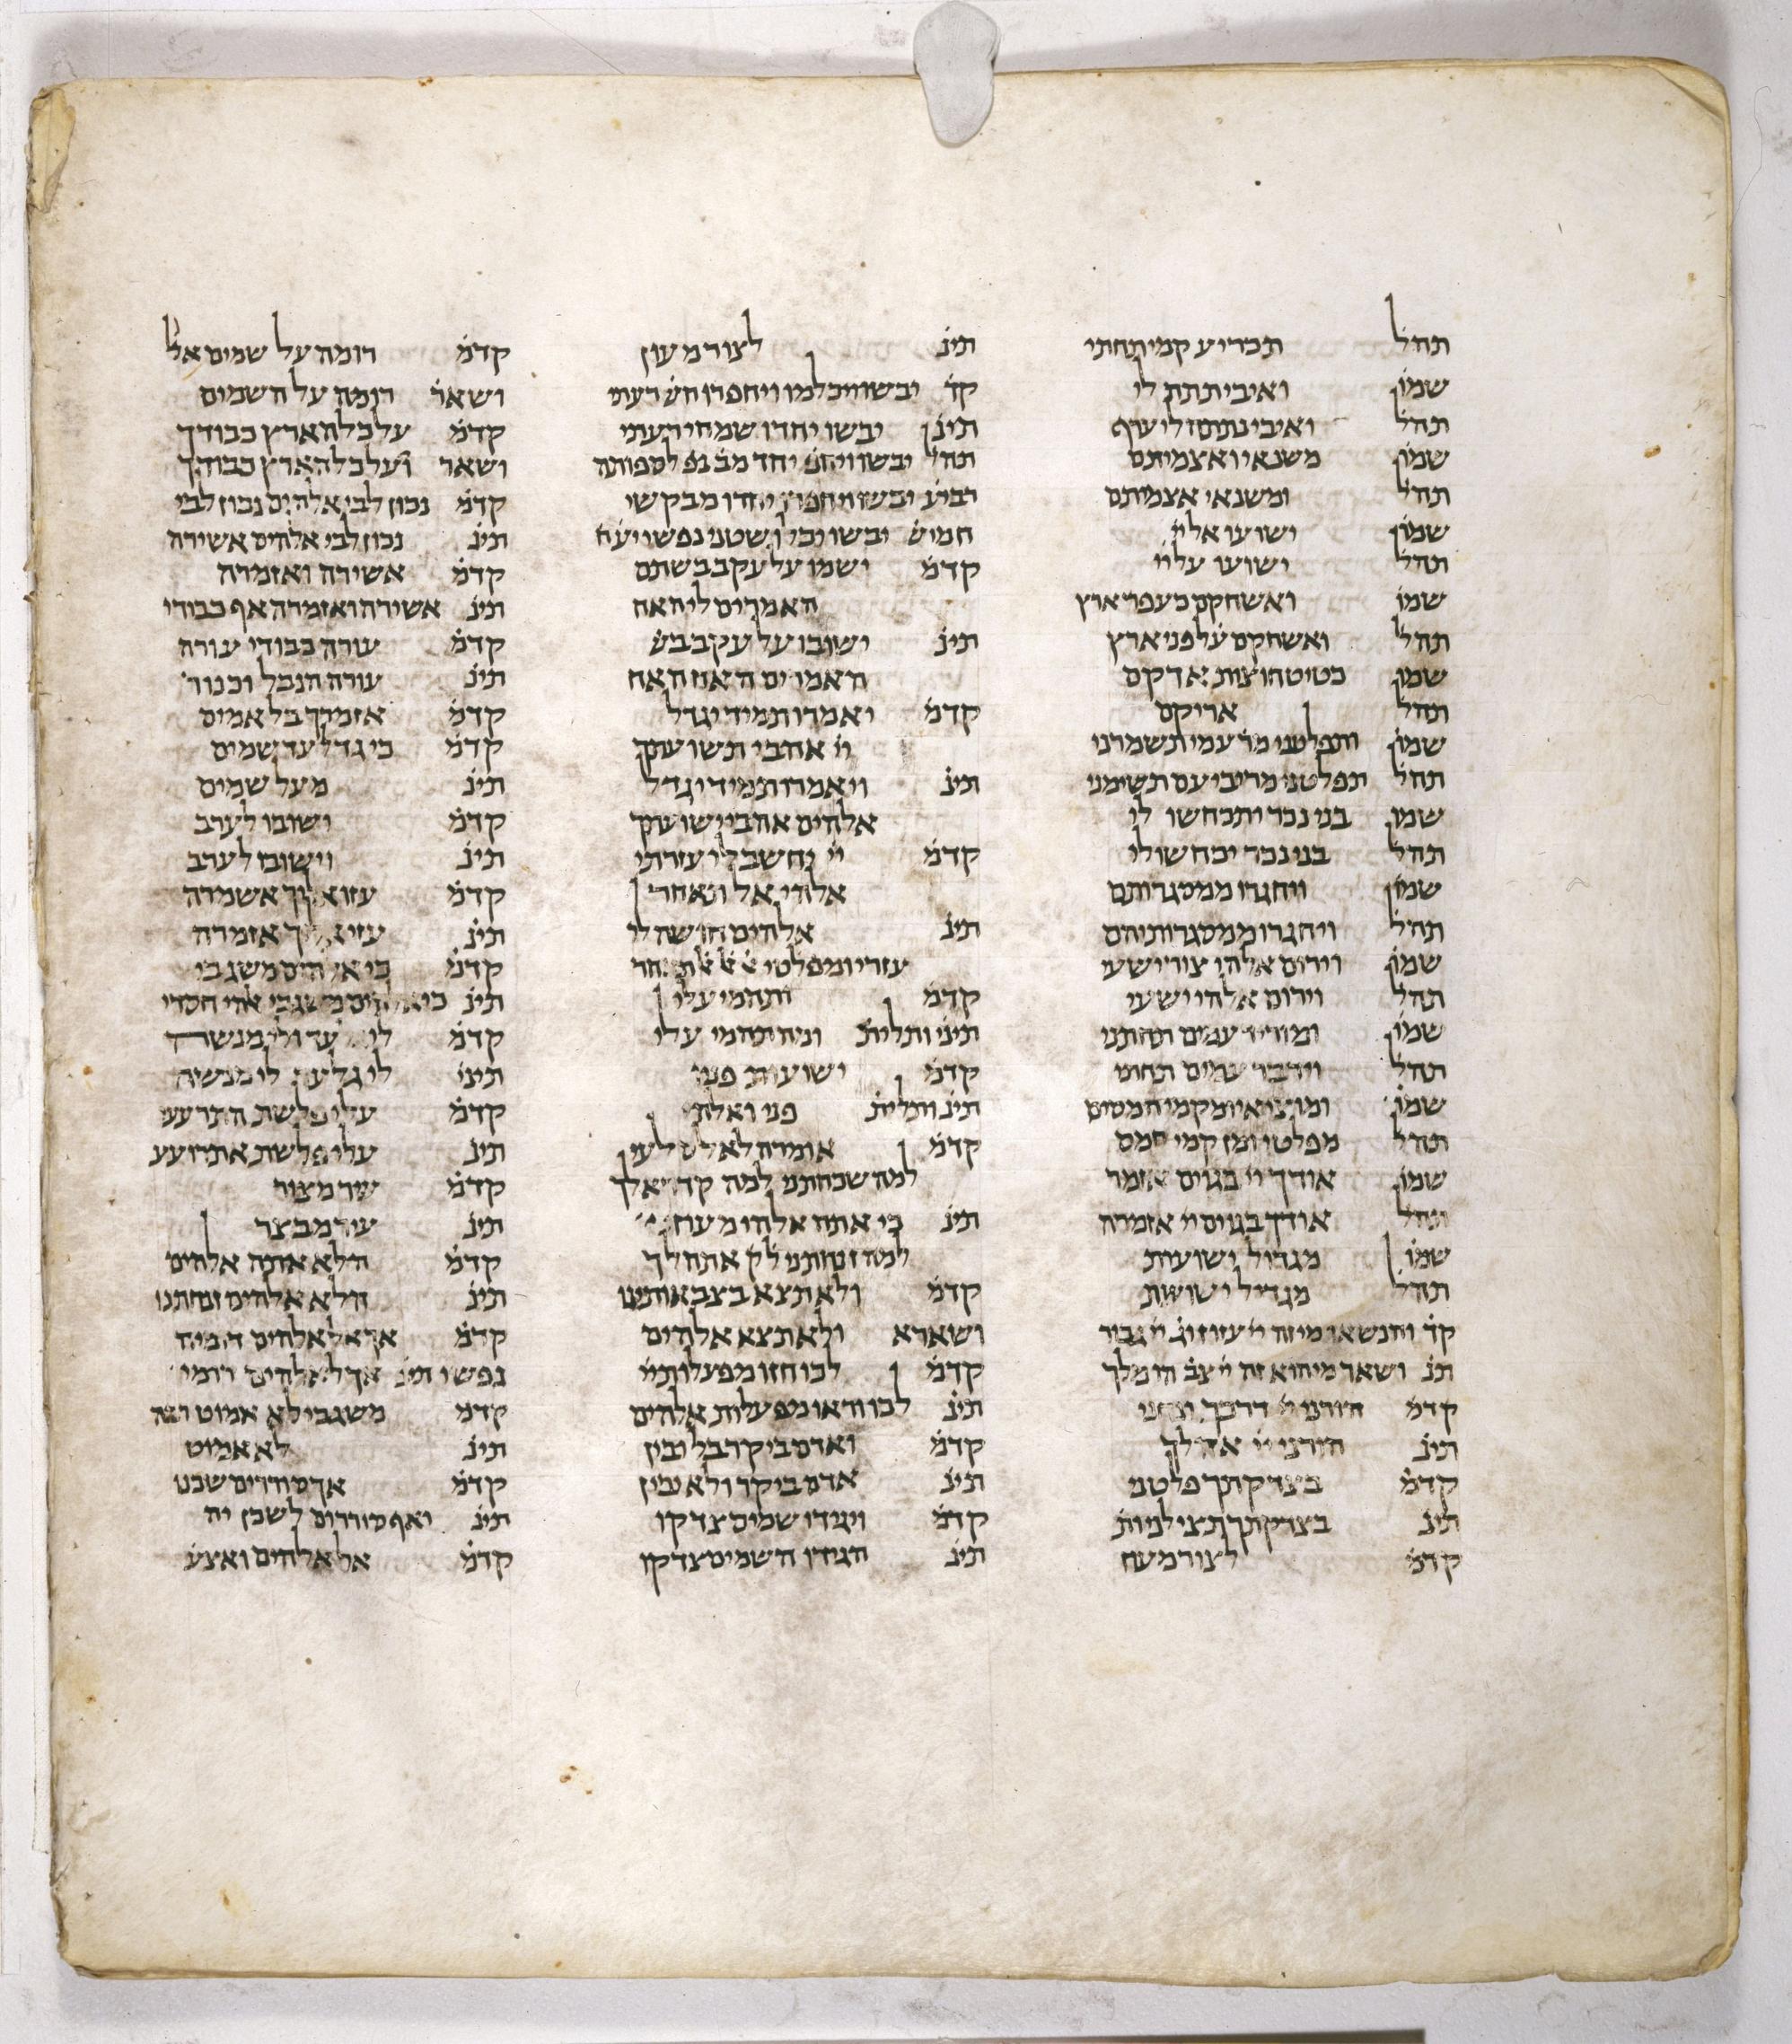 תהל תכריע קמי תחתי
שמו ואיבי תתת לי
תהל ואיבי נתתה לי ערף
שמו משנאי ואצמיתם
תהל ומשנאי אצמיתם
שמו ישועו אל יי
תהל ישועו על יי
שמו ואשחקם כעפר ארץ
תהל ואשחקם על פני ארץ
שמו כטיט חוצות אדקם
תהל אריקם
שמו ותפלטני מר עמי תשמרני
תהל תפלטני מריבי עם תשימני
שמו בני נכר יתכחשו לי
תהל בני נכר יכחשו לי
שמו ויחגרו ממסגרותם
תהל ויחרגו ממסגרותיהם
שמו וירום אלהי צור ישעי
תהל וירום אלהי ישעי
שמו ומוריד עמים תחתני
תהל וידבר עמים תחתי
שמו ומוציאי ומקמי חמסים
תהל מפלטי ומן קמי חמס
שמו אודך יי בגוים אזמר
תהל אודך בגוים יי אזמרה
שמו מגדול ישועות
תהל מגדיל ישועות
קד והנשאו מי זה יי עזוז וג יי גבור
תנ ושאר מי הוא זה יי צב הו מלך
קדמ הורני יי דרכך
תינ הורני יי אהלך
קדמ בצדקתך פלטני
תינ בצדקתך תצילני ות
קדמ לצור מעוז
תינ לצור מעון
קד יבשו ויכלמו ויחפרו חש רעתי
תינ יבשו יחדו שמחי רעתי
תהל יבשו ויחפ יחד מב נפ לספותה
רביע יבשו ויחפרו יחדו מבקשי
חמיש יבשו יכלו שטני נפשי יעה
קדמ ישמו על עקב בשתם
האמרים לי האח
תינ ישובו על עקב בש
האמרים האח האח
קדמ יאמרו תמיד יגדל
יי אהבי תשועתך
תינ ויאמרו תמיד יגדל
אלהים אהבי ישועתך
קדמ יי יחשב לי עזרתי
אלהי אל תאחר
תינ אלהים חושה לי
עזרי ומפלטי תאחר
קדמ ותהמי עלי
תינ ותלית ומה תהמי עלי
קדמ ישועות פניו
תינ ותלית פני ואלהי
קדמ אומרה לאל סלעי
למה שכחתני למה קדר אלך
תינ כי אתה אלהי מעוזי
למה זנחתני למ אתהלך
קדמ ולא תצא בצבאותינו
ושארא ולא תצא אלהים
קדמ לכו חזו מפעלות יי
תינ לכו וראו מפעלות אלהים
קדמ ואדם ביקר בל ילין
תינ אדם ביקר ולא יבין
קדמ ויגידו שמים צדקו
תינ הגידו השמים צדקו
קדמ רומה על שמים אל
ושאר רומה על השמים
קדמ על כל הארץ כבודך
ושאר ועל כל הארץ כבודך
קדמ נכון לבי אלהים נכון לבי
תינ נכון לבי אלהים אשירה
קדמ אשירה ואזמרה
תינ אשירה ואזמרה אף כבודי
קדמ עורה כבודי עורה
תינ עורה הנבל וכנור
קדמ אזמרך בלאמים
קדמ כי גדל עד שמים
תינ מעל שמים
קדמ ישובו לערב
תינ וישובו לערב
קדמ עזו אליך אשמרה
תינ עזי אליך אזמרה
קדמ כי אלהים משגבי
תינ כי אלהים משגבי אלהי חסדי
קדמ לי גלעד ולי מנשה
תינ לי גלעד לי מנשה
קדמ עלי פלשת התרעעי
תינ עלי פלשת אתרועע
קדמ עיר מצור
תינ עיר מבצר
קדמ הלא אתה אלהים
תינ הלא אלהים זנחתנו
קדמ אך אל אלהים דומיה
נפשי תינ אך לאלהים דומי
קדמ משגבי לא אמוט רבה
תינ לא אמוט
קדמ אך סוררים שכנו
תינ ואף סוררים לשכן יה
קדמ אל אלהים ואצע